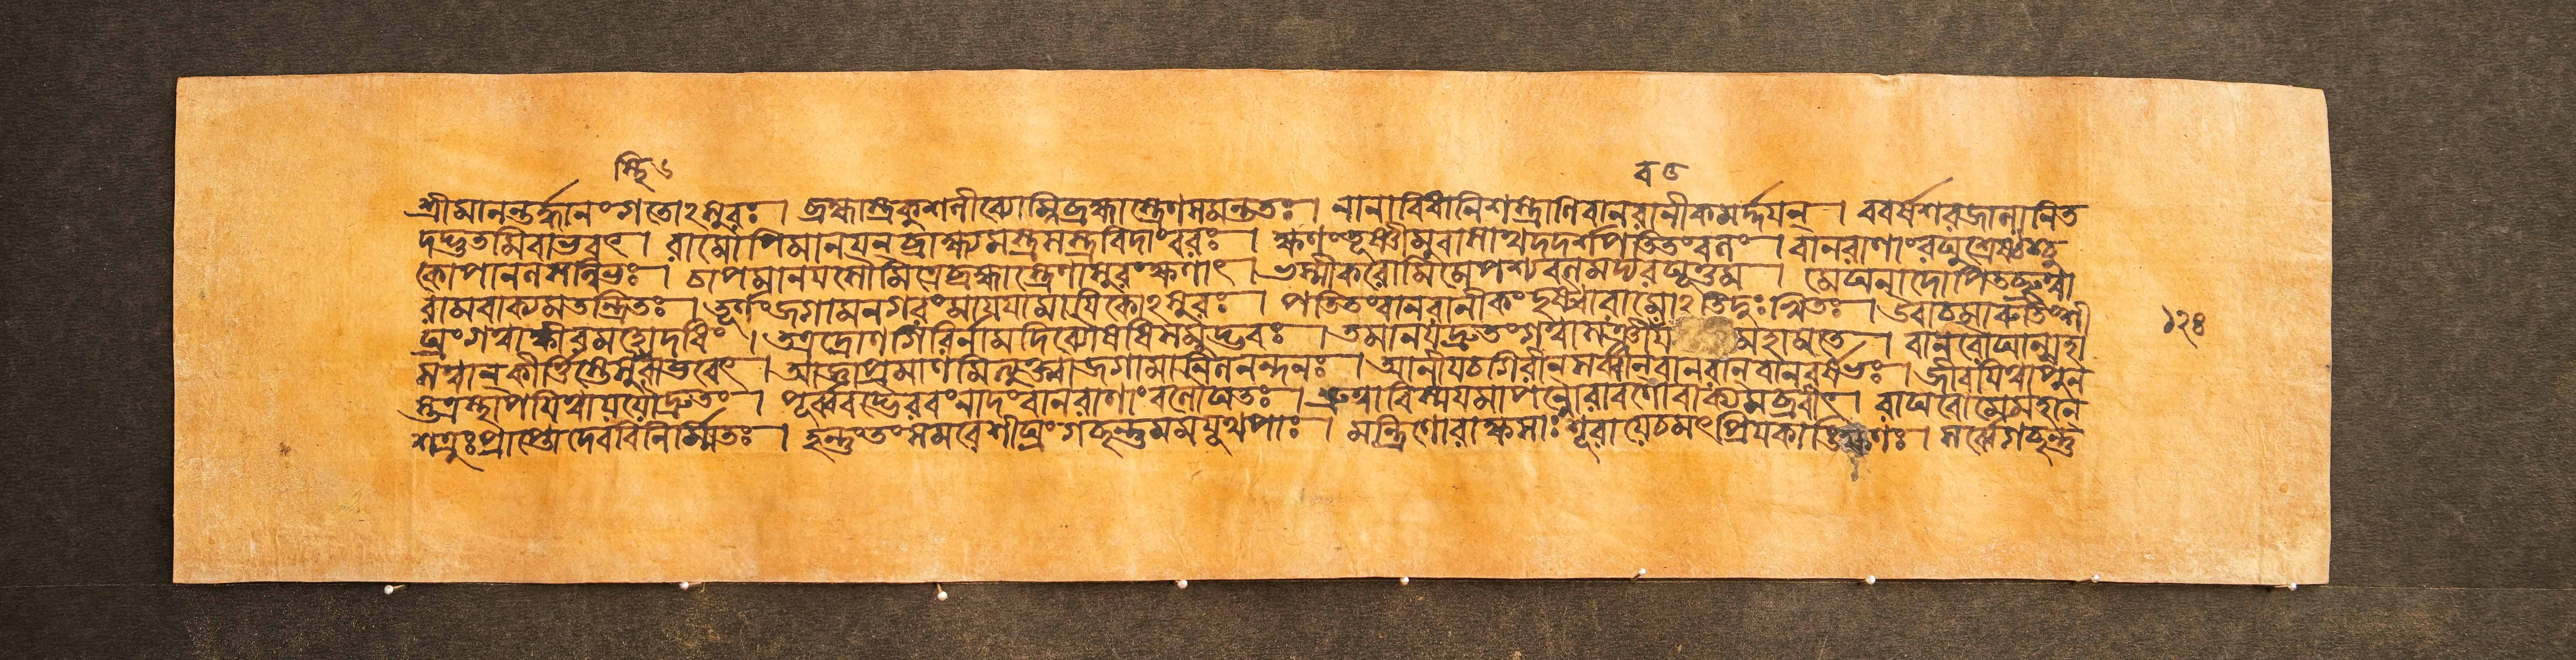 স্থি ৬ ব ৫
শ্রীমানন্তর্দ্ধানং গতোঽসুরঃ । ব্রহ্মাস্ত্রকুশলীব্যোম্নিব্রহ্মাস্ত্রেণসমন্ততঃ । নানাবিধানিশস্ত্রাণিবানরানীকমর্দ্দয়ন্ । ববর্ষশরজালানিত
দদ্ভুতমিবাভবৎ । রামোপিমানয়ন্ব্রাহ্ম্যমস্ত্রমস্ত্রবিদাংবরঃ । ক্ষণংতূষ্ণীমুবাসাথদদর্শপতিতংবলং । বানরাণাংরঘুশ্রেষ্ঠশ্চু
কোপানলসন্নিভঃ । চাপমানয়সৌমিত্রেব্রহ্মাস্ত্রেণাসুরংক্ষণাৎ । ভস্মীকরোমিমেপশ্যবলমদ্যরঘূত্তম । মেঘনাদোপিতচ্ছ্রুত্বা
রামবাক্যমতন্দ্রিতঃ । তূর্ণংজগামনগরংমায়য়ামায়িকোঽসুরঃ । পতিতংবানরানীকংদৃষ্ট্বারামোঽতিদুঃখিতঃ । উবাচমারুতিংশী
ঘ্রংগত্বাক্ষীরমহোদধিং । তত্রদ্রোণগিরির্নামদিব্যৌষধিসমুদ্ভবঃ । তমানয়দ্রুতংগত্বাসঞ্জীবয় মহামতে । বানরৌঘান্মহা
সত্বান্কীর্ত্তিস্তেসুস্থিরাভবেৎ । আজ্ঞাপ্রমাণমিত্যুক্ত্বাজগামানিলনন্দনঃ । আনীয়চগিরিংসর্ব্বান্বানরান্বানরর্ষভঃ । জীবয়িত্বাপুন
স্তত্রস্থাপয়িত্বায়য়ৌদ্রুতং । পূর্ব্ববদ্ভৈরবংনাদংবানরাণাংবলৌঘতঃ । শ্রুত্বাবিস্ময়মাপন্নোরাবণোবাক্যমব্রবীৎ । রাঘবোমেমহান্
শত্রুঃপ্রাপ্তোদেববিনির্ম্মিতঃ । হন্তুংতংসমরেশীঘ্রংগচ্ছন্তুমময়ূথপাঃ । মন্ত্রিণোরাক্ষসাঃশূরায়েচমৎপ্রিয়কাঙ্ক্ষিণঃ । সর্ব্বেগচ্ছন্তু
১২৪